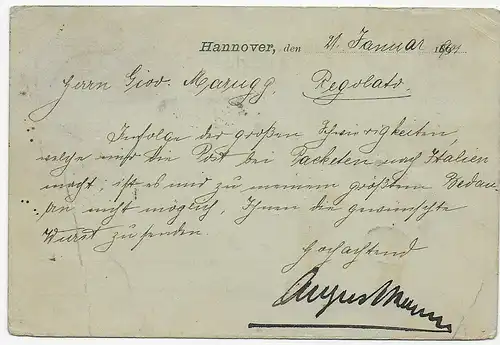 Hannover, den 21. Januar 18
Herrn Giov. Marugg, Regolato.
Infolge der großen Schwierigkeiten,
welche mir die Post bei Packeten nach Italien
macht, ist es mir zu meinem größtem Bedau-
ern nicht möglich, Ihnen die gewünschte
Wurst zu senden.
Hochachtend
August Mann